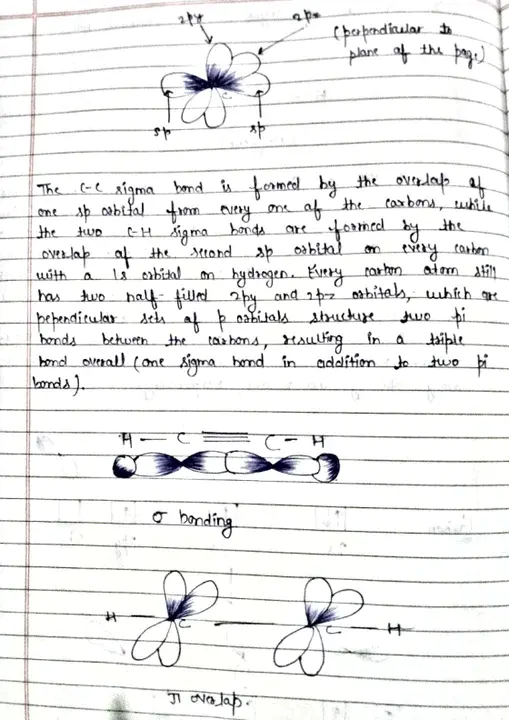 2py 2pz (perpendicular to
plane of the page)
C
sp sp
The C-C sigma bond is formed by the overlap of
one sp orbital from every one of the carbons, while
the two C-H sigma bonds are formed by the
overlap of the second sp orbital on every carbon
with a 1s orbital on hydrogen. Every carbon atom still
has two half-filled 2py and 2pz orbitals, which are
pependicular sets of p orbitals structure two pi
bonds between the carbons, resulting in a triple
bond overall (one sigma bond in addition to two pi
bonds).
H — C ≡ C - H
σ bonding
H C C H
π overlap.